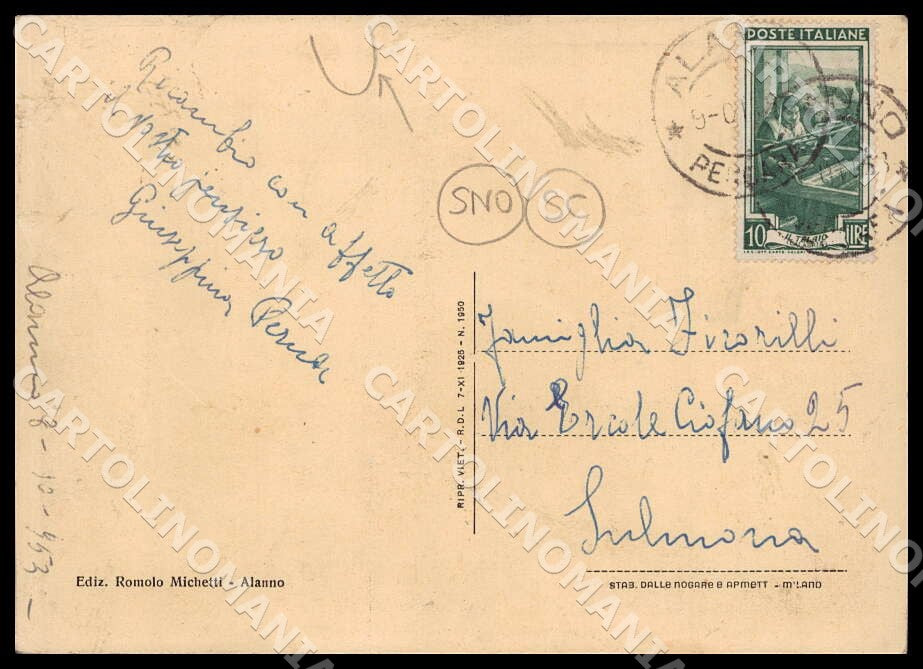 POSTE ITALIANE
ALANNO
PESCARA
IL TELAIO
10 LIRE
SNO SC
Ricambio con affetto
il vostro pensiero
Giuseppina Perna
Alanno 8-10-953-
Famiglia Ficorilli
Via Ercole Ciofano 25
Sulmona
RIPR. VIET. - R.D.L. 7-XI 1925 - N. 1950
Ediz. Romolo Michetti - Alanno
STAB. DALLE NOGARE E ARMETTI - MILANO
CARTOLINOMANIA